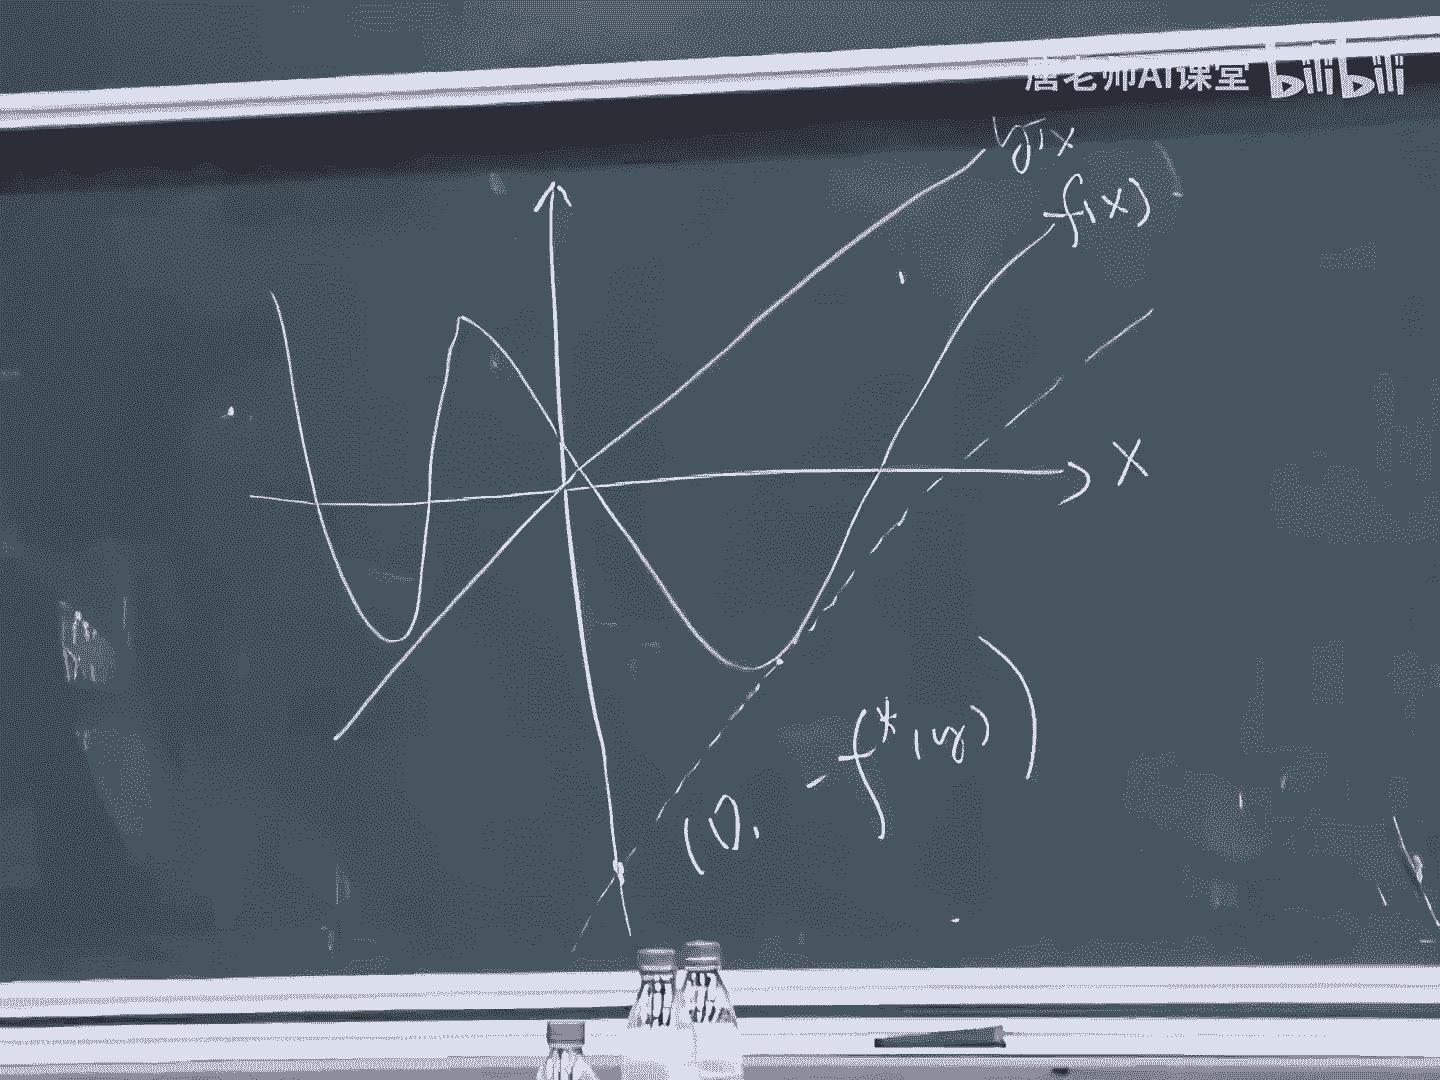 唐老师AI课堂 bilibili
yx
f(x)
x
(0, -f*(y))